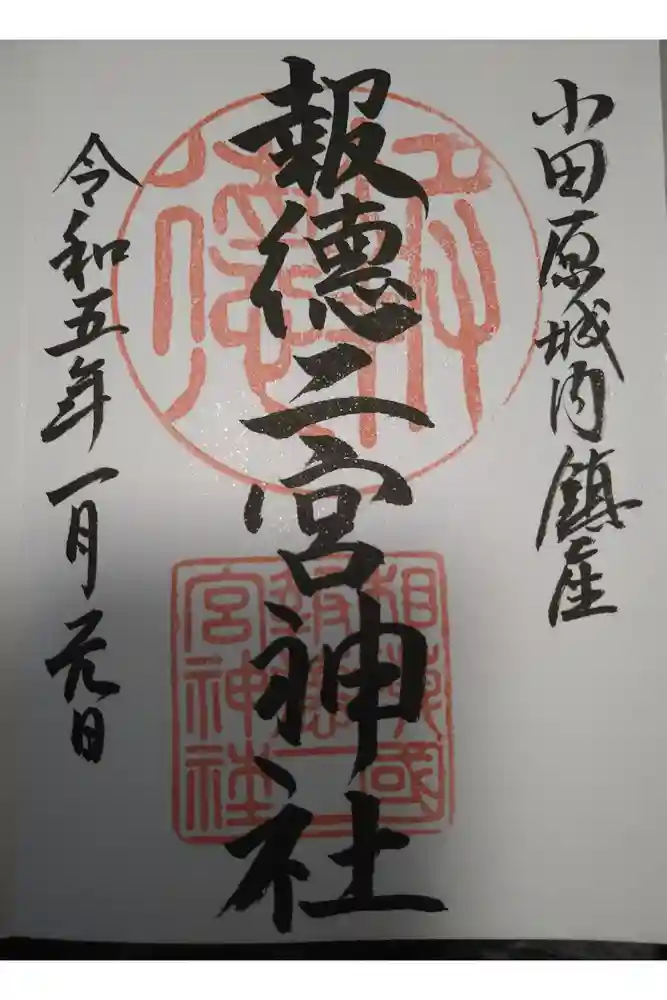 小田原城内鎮座
報德二宮神社
令和五年一月元日
相模國
報德二
宮神社